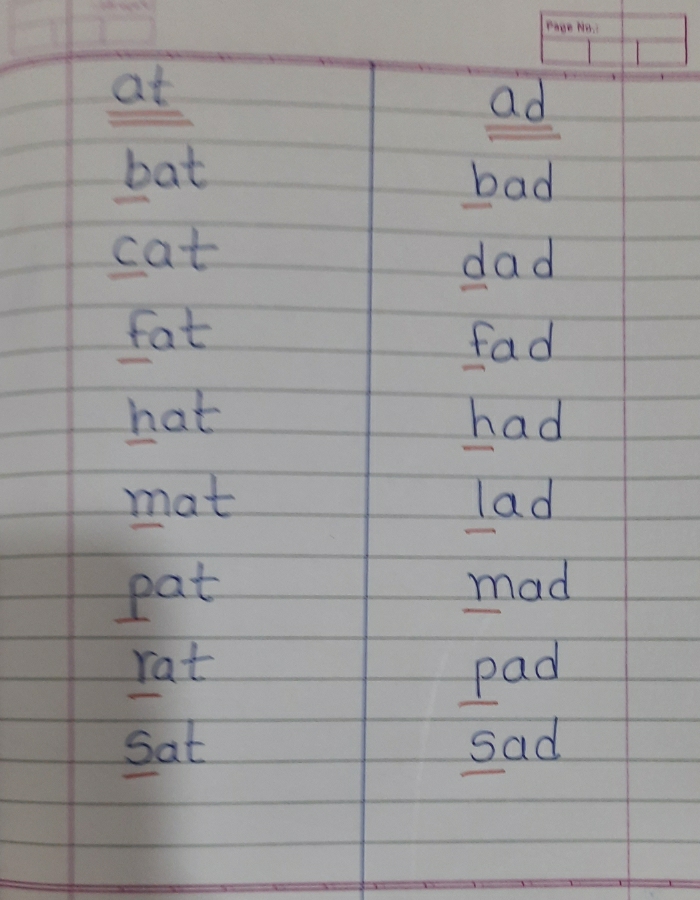 Page No.:
at
bat
cat
fat
hat
mat
pat
rat
sat
ad
bad
dad
fad
had
lad
mad
pad
sad